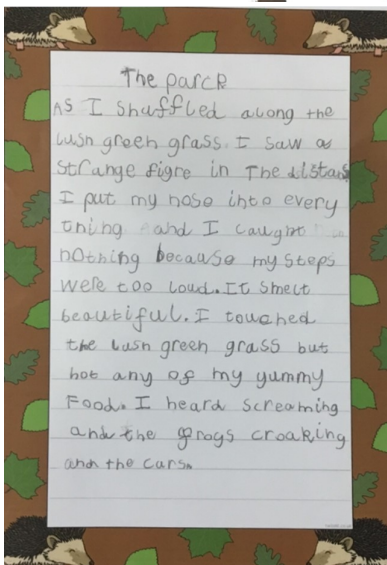 The parck
As I Shuffled along the
lush green grass. I saw a
strange figre in The distans
I put my nose into every
thing and I caught
nothing because my steps
were too loud. It smelt
beautiful. I touched
the lush green grass but
not any of my yummy
Food. I heard screaming
and the frogs croaking
and the cars.